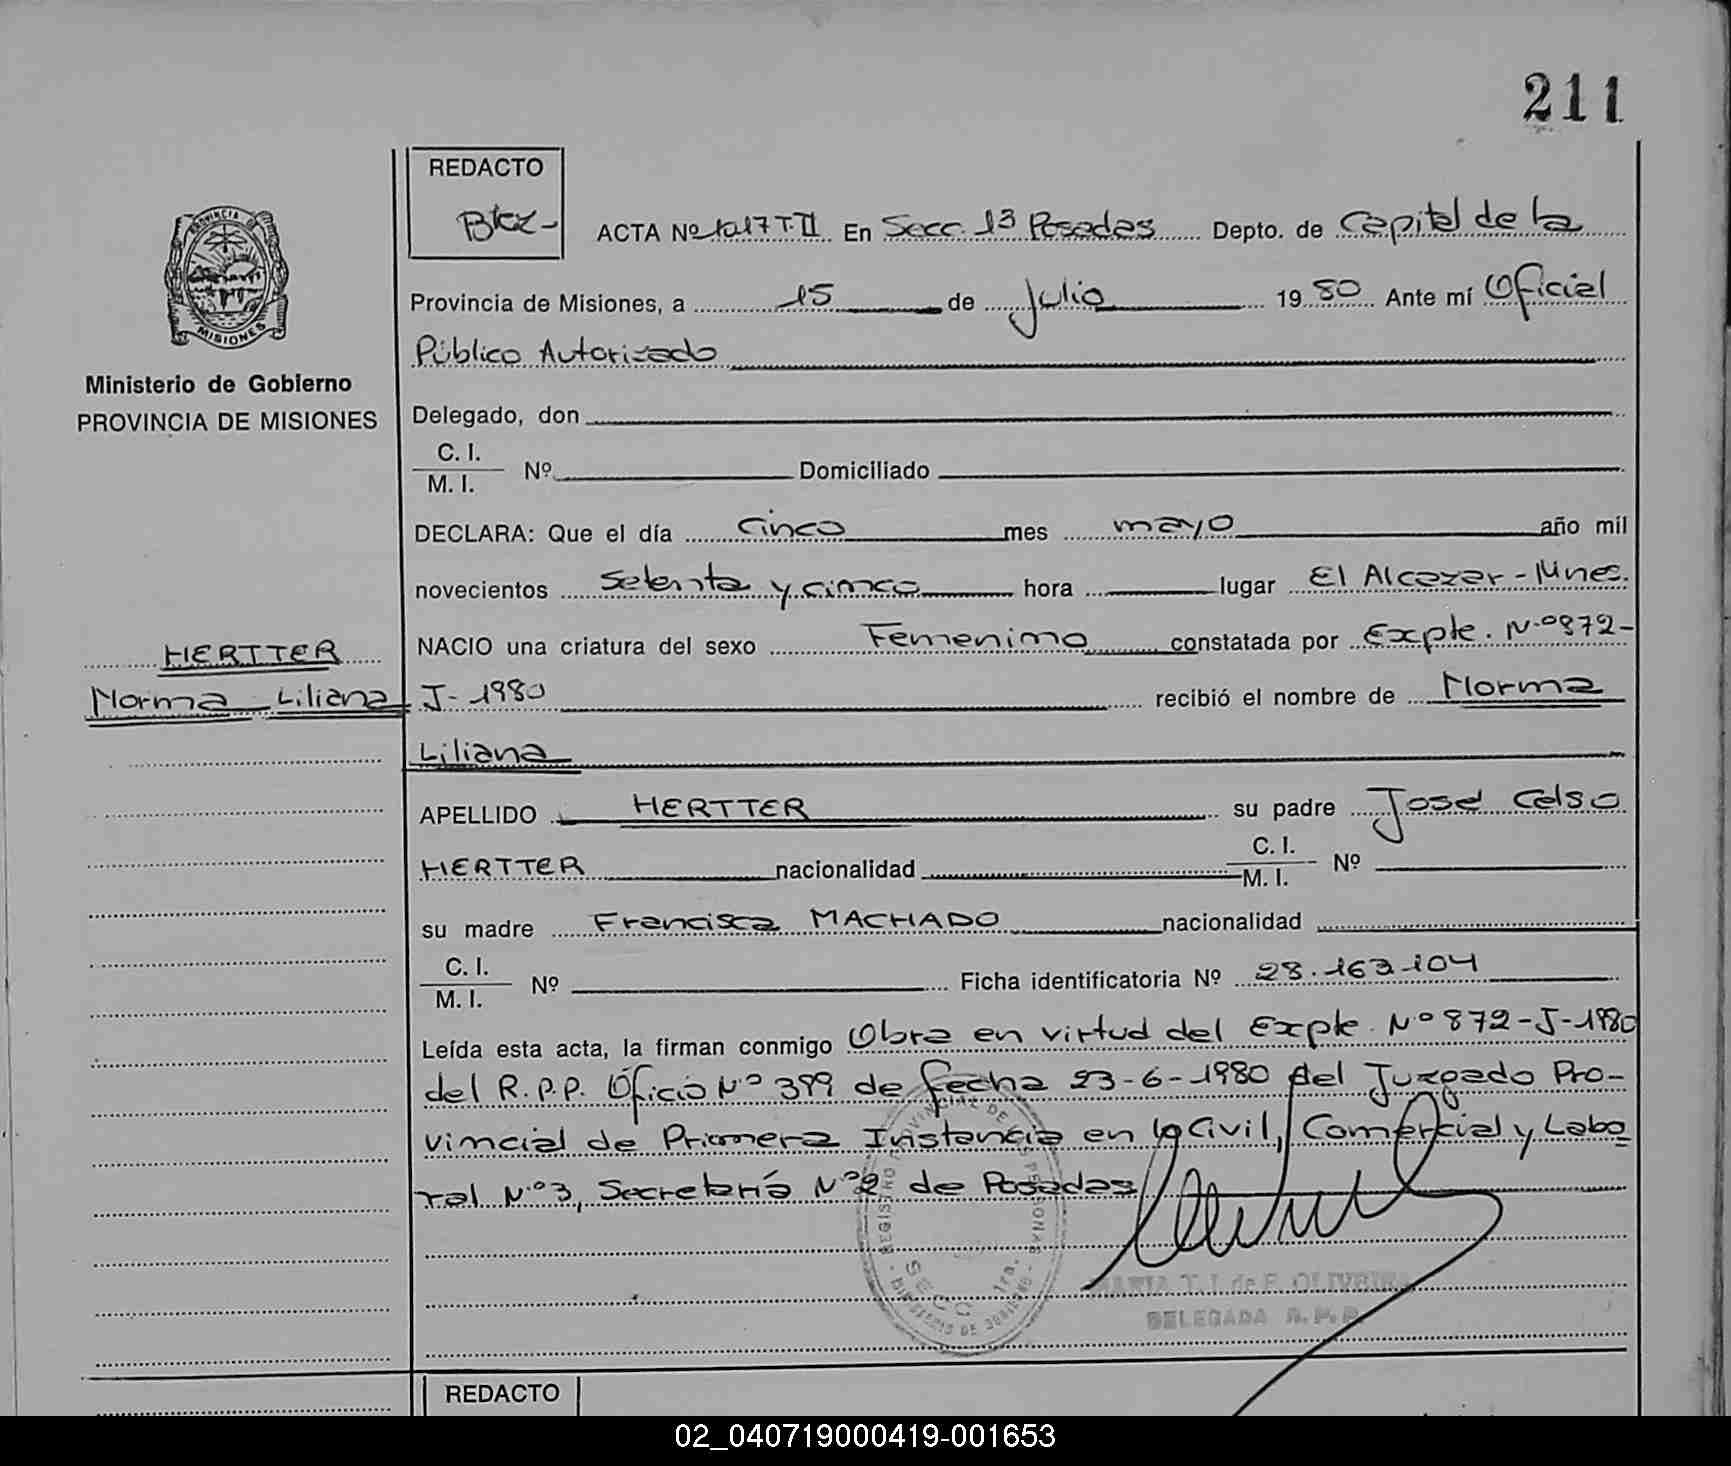 211
REDACTO
Btez-
PROVINCIA DE
MISIONES
ACTA Nº 1017 T.II En Secc. 1ª Posadas Depto. de Capital de la
Provincia de Misiones, a 15 de Julio 19 80 Ante mí Oficial
Público Autorizado
Ministerio de Gobierno
PROVINCIA DE MISIONES
Delegado, don
C. I.
M. I. Nº Domiciliado
DECLARA: Que el día cinco mes mayo año mil
novecientos setenta y cinco hora lugar El Alcazar - Mnes.
NACIO una criatura del sexo Femenino constatada por Expte. Nº 872-
HERTTER
Norma Liliana
J-1980 recibió el nombre de Norma
Liliana
APELLIDO HERTTER su padre José Celso
HERTTER nacionalidad C. I. M. I. Nº
su madre Francisca MACHADO nacionalidad
C. I.
M. I. Nº Ficha identificatoria Nº 28.163.104
Leída esta acta, la firman conmigo Obra en virtud del Expte. Nº 872-J-1980
del R.P.P. Oficio Nº 399 de fecha 23-6-1980 del Juzgado Pro-
vincial de Primera Instancia en lo Civil, Comercial y Labo-
ral Nº 3, Secretaría Nº 2 de Posadas
REGISTRO PROVINCIAL DE LAS PERSONAS
SECC. 1ra.
MINISTERIO DE GOBIERNO
MARIA T. J. de F. OLIVEIRA
DELEGADA R. P. P.
REDACTO
02_040719000419-001653